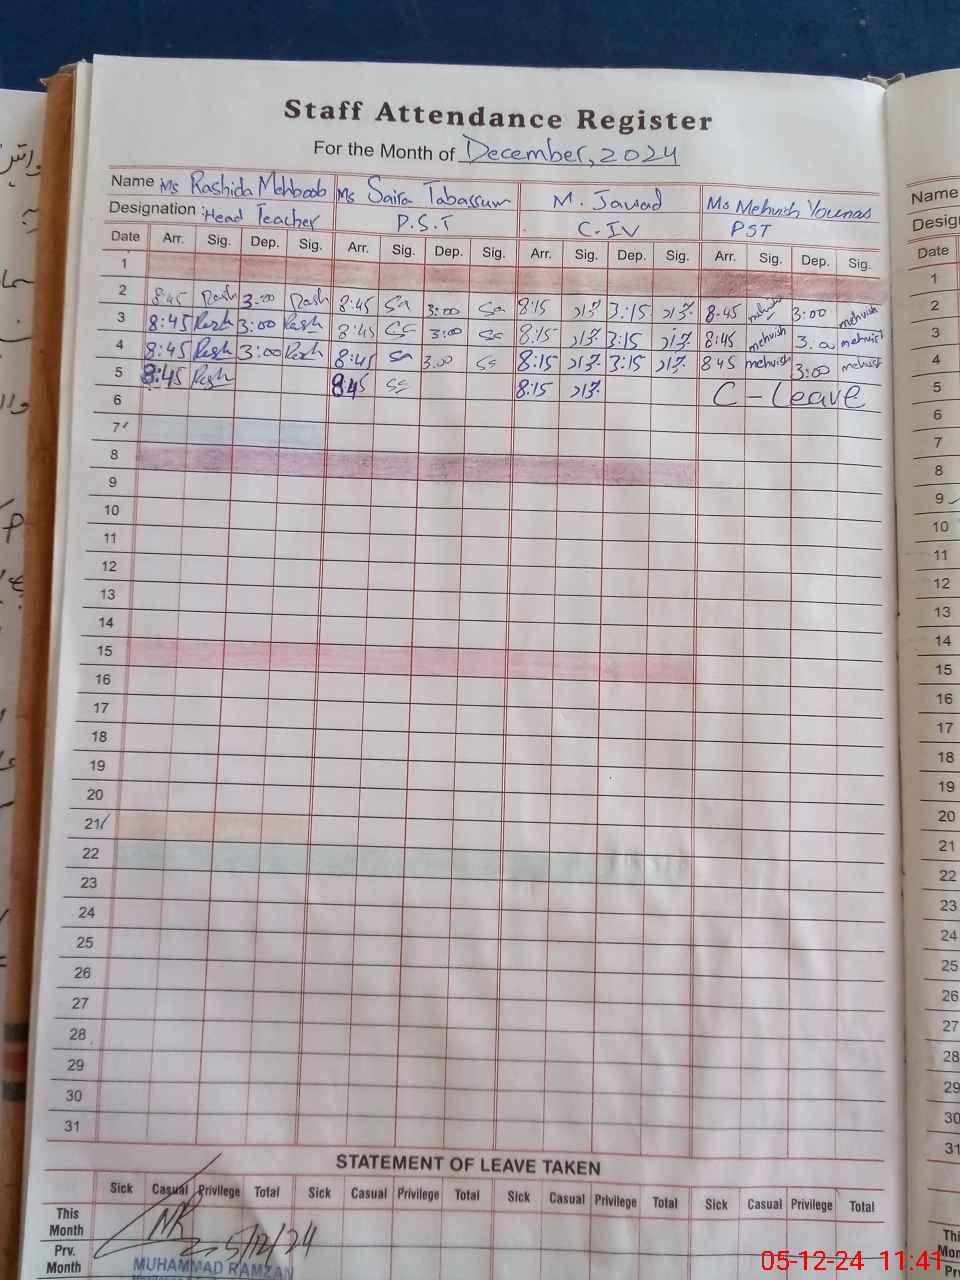 Staff Attendance Register
For the Month of December, 2024
Name Ms Rashida Mehboob Ms Saira Tabassum M. Javad Ms Mehvish Younas
Designation : Head Teacher P.S.T C.IV PST
Date Arr. Sig. Dep. Sig. Arr. Sig. Dep. Sig. Arr. Sig. Dep. Sig. Arr. Sig. Dep. Sig.
1
2 8:45 Rash 3:00 Rash 8:45 Sa 3:00 Sa 8:15 3:15 8:45 mehvish 3:00 mehvish
3 8:45 Rash 3:00 Rash 8:45 SS 3:00 Sa 8:15 3:15 8:45 mehvish 3:00 mehvish
4 8:45 Rash 3:00 Rash 8:45 Sa 3:00 SS 8:15 3:15 8:45 mehvish 3:00 mehvish
5 8:45 Rash 8:45 SS 8:15 C - Leave
6
7
8
9
10
11
12
13
14
15
16
17
18
19
20
21
22
23
24
25
26
27
28
29
30
31
STATEMENT OF LEAVE TAKEN
Sick Casual Privilege Total Sick Casual Privilege Total Sick Casual Privilege Total Sick Casual Privilege Total
This Month
5/12/24
Prv. Month
MUHAMMAD RAMZAN
Name
Date
1
2
3
4
5
6
7
8
9
10
11
12
13
14
15
16
17
18
19
20
21
22
23
24
25
26
27
28
29
30
31
05-12-24 11:41